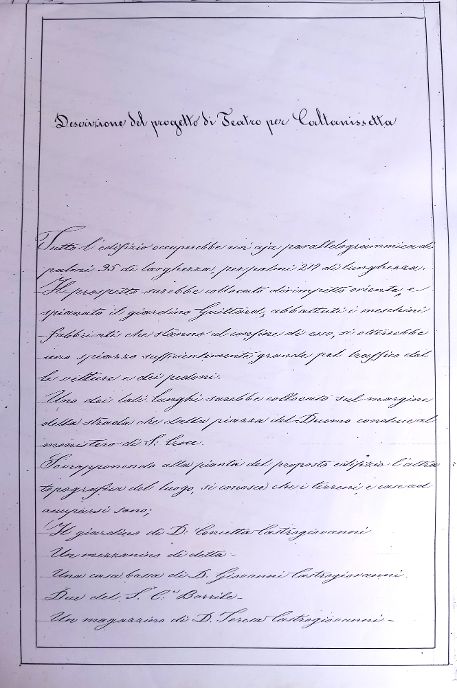 Descrizione del progetto di Teatro per Caltanissetta
Tutto l'edifizio occuperebbe un'aja parallelogrammica di
palmi 95 di larghezza, per palmi 219 di lunghezza.
Il prospetto sarebbe collocato dirimpetto oriente, e
spianato il giardino Guittard, abbattuti i meschini
fabbricati che stanno al confine di esso, si otterrebbe
uno spiazzo sufficientemente grande pel traffico del
le vetture e dei pedoni.
Uno dei lati lunghi sarebbe collocato sul margine
della strada che dalla piazza del Duomo conduce al
monistero di S. Croce.
Sovrapponendo alla pianta del proposto edifizio l'altra
topografica del luogo, si conosce che i terreni, e case ad
occuparsi sono;
Il giardino di D. Concetta Castrogiovanni
Un mezzanino di detta -
Una casa bassa di D. Giovanni Castrogiovanni.
Due del S. C. Barrile -
Un magazzino di D. Teresa Castrogiovanni -